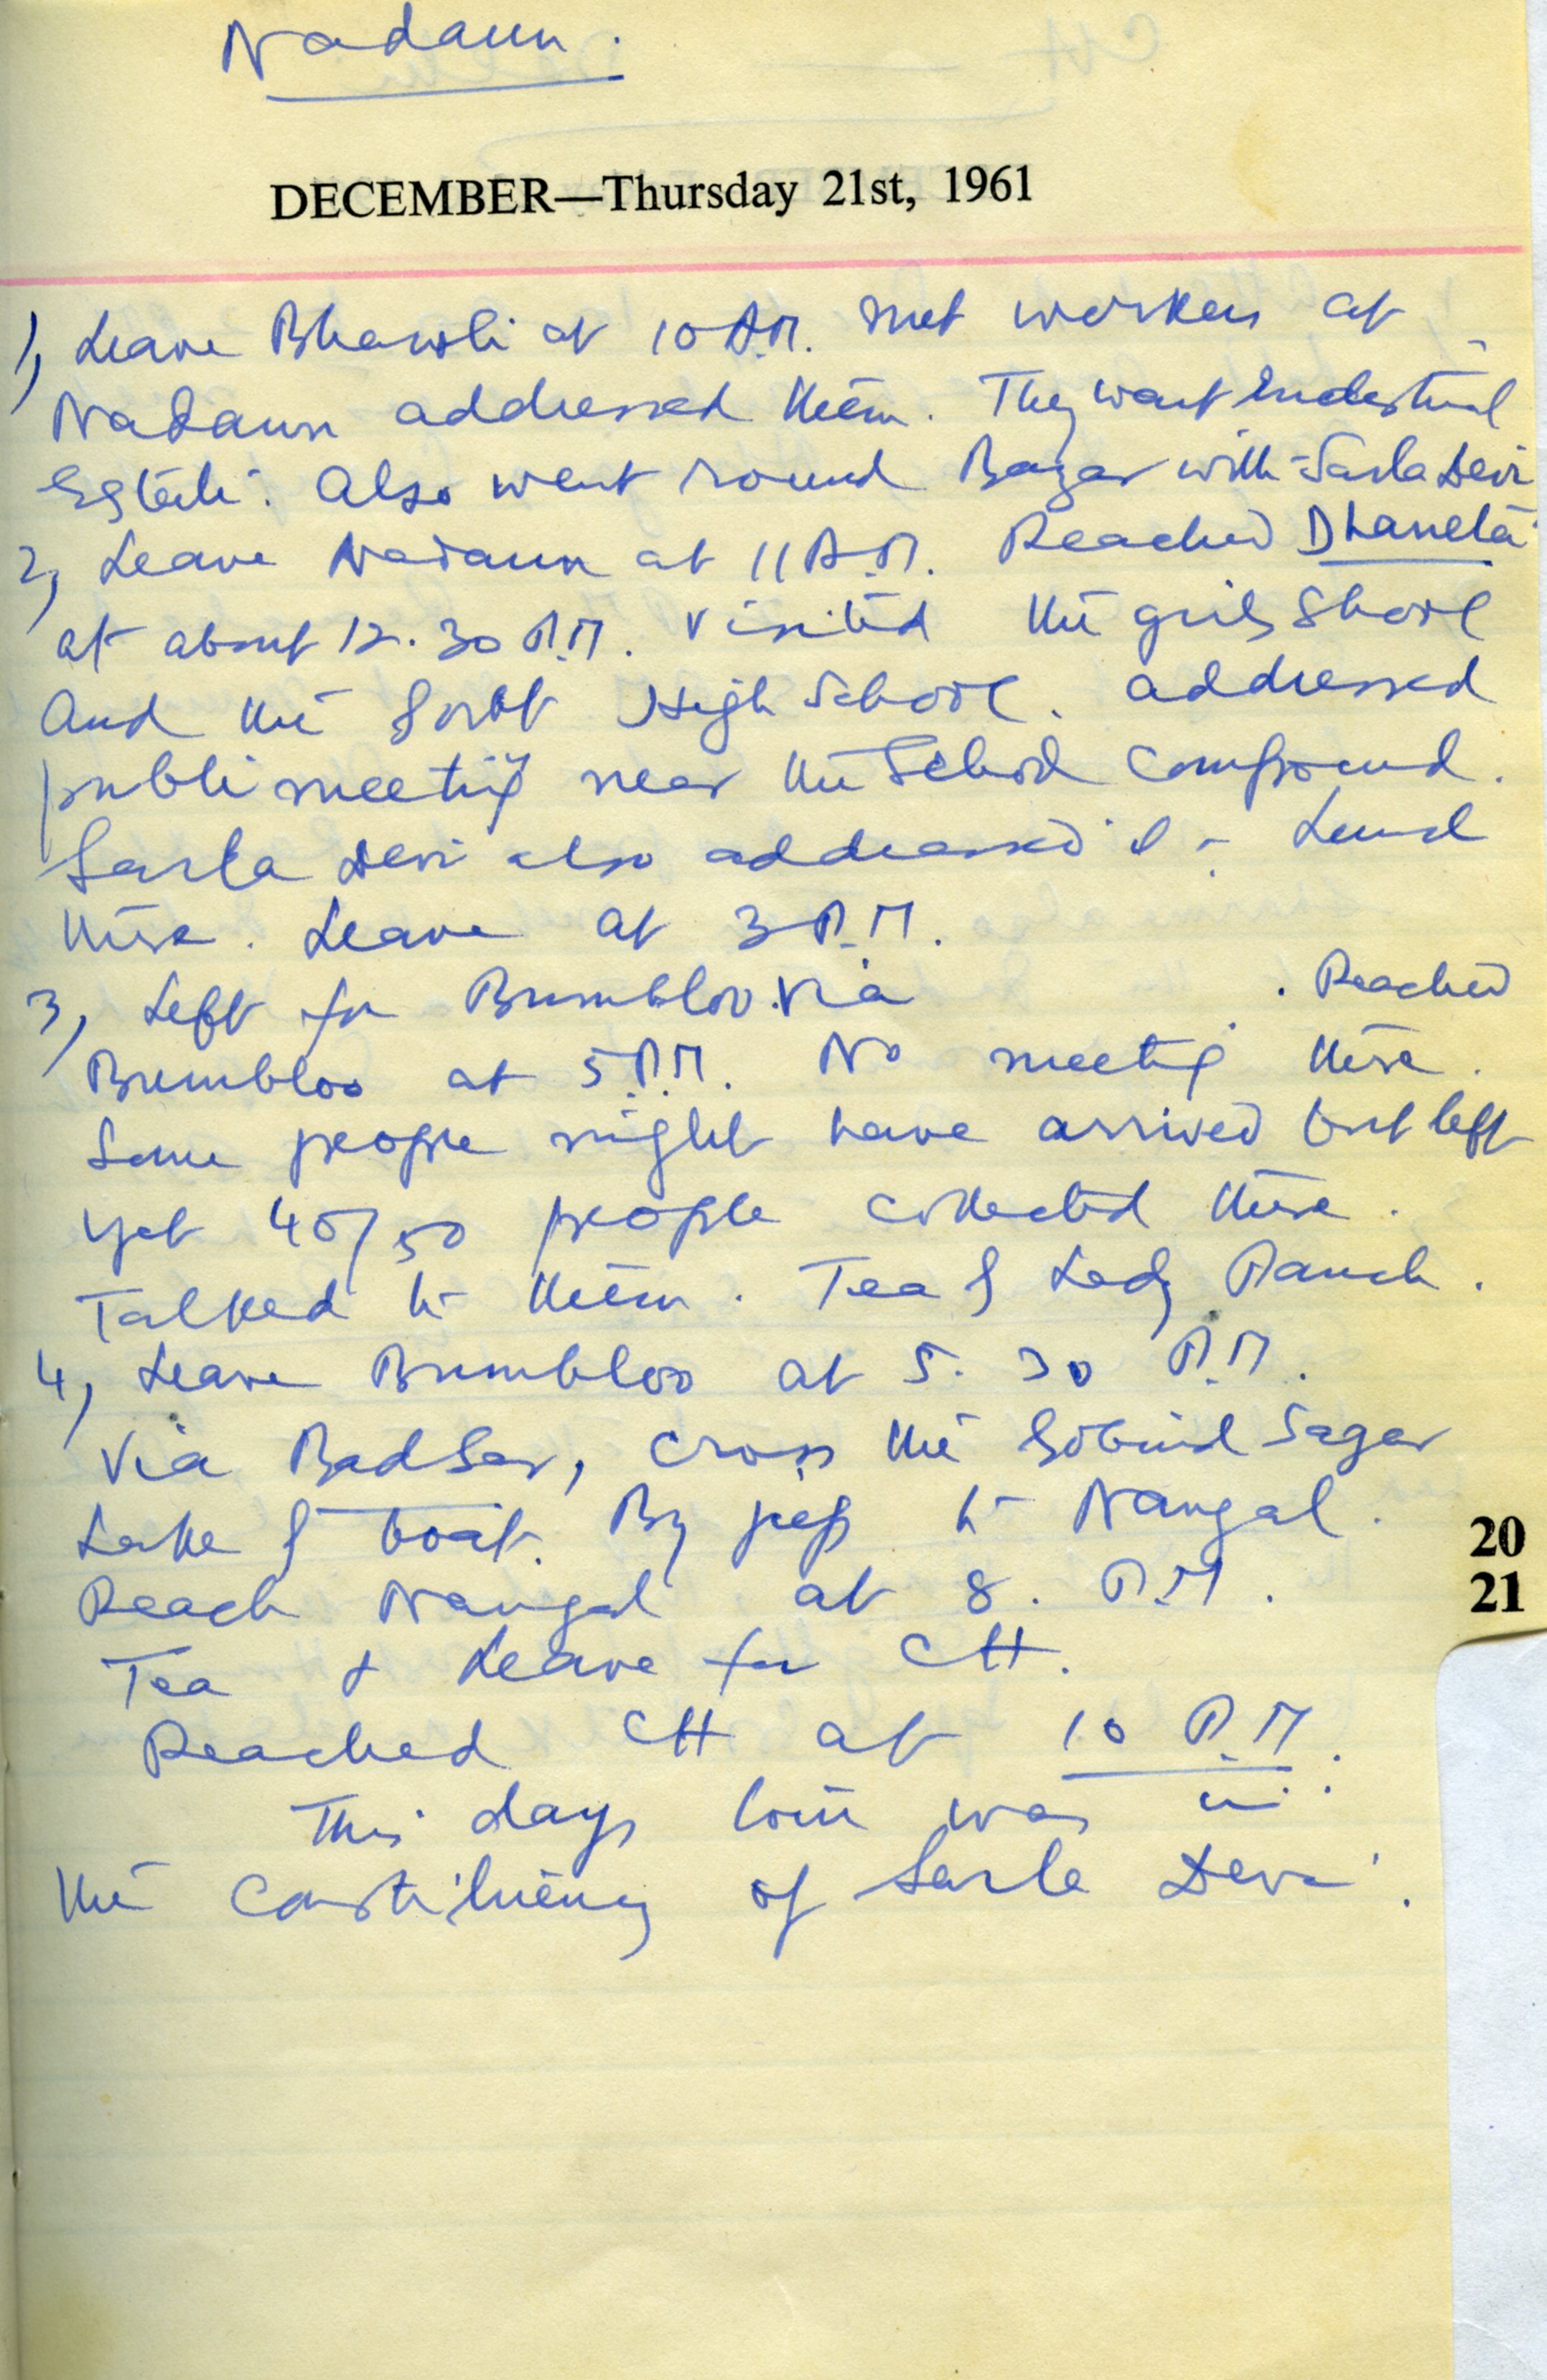 Nadaun.
DECEMBER—Thursday 21st, 1961
1, Leave Bhawli at 10 A.M. Met workers at
Nadaun addressed them. They want Industrial
Estate. Also went round Bazar with Sarla Devi
2, Leave Nadaun at 11 A.M. Reached Dhaneta
at about 12.30 P.M. Visited the girls School
and the Govt High School. addressed
public meeting near the School compound.
Sarla Devi also addressed it. Lunch
there. Leave at 3 P.M.
3, Left for Bumbloo via . Reached
Bumbloo at 5 P.M. No meeting there.
Some people might have arrived but left
yet 40/50 people collected there.
Talked to them. Tea Lady Panch.
4, Leave Bumbloo at 5.30 P.M.
Via Badsar, cross the Gobind Sagar
Lake boat. By jeep to Nangal.
Reach Nangal at 8. P.M.
Tea & Leave for CH.
Reached CH at 10 P.M.
20
21
This days tour was in
the constituency of Sarla Devi.